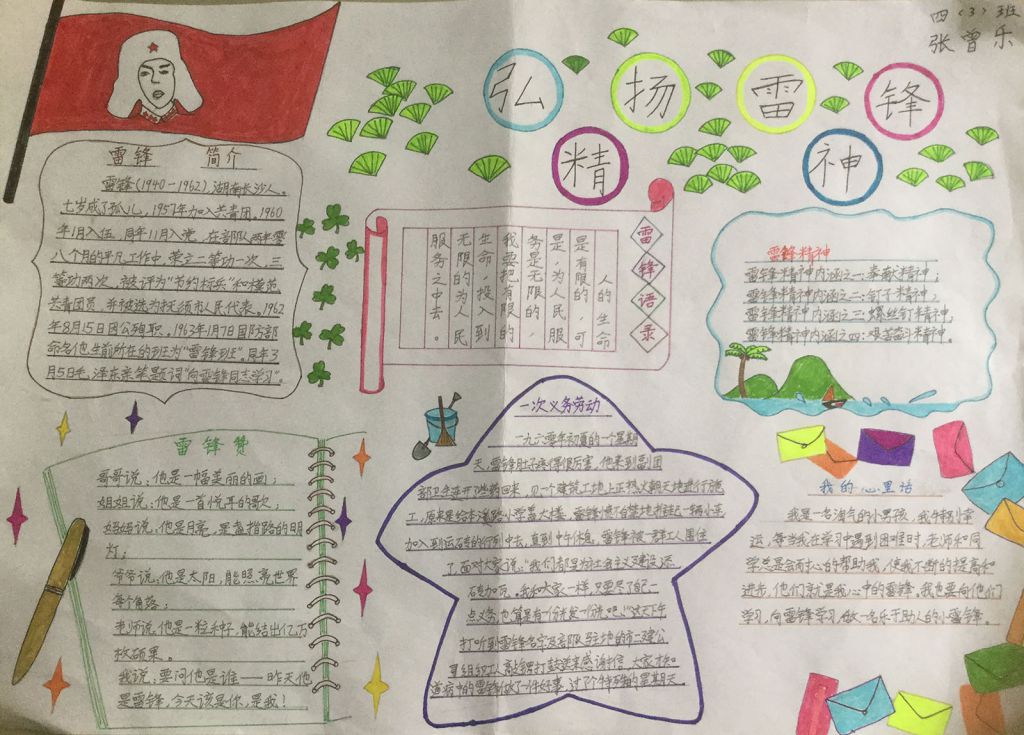 四(3)班
张曾乐
弘扬雷锋
精神
雷锋 简介
雷锋(1940-1962),湖南长沙人。
七岁成了孤儿,1957年加入共青团。1960
年1月入伍,同年11月入党,在部队两年零
八个月的平凡工作中,荣立二等功一次,三
等功两次,被评为“节约标兵”和模范
共青团员,并被选为抚顺市人民代表。1962
年8月15日因公殉职。1963年1月7日国防部
命名他生前所在的班为“雷锋班”。同年3
月5日毛泽东亲笔题词“向雷锋同志学习”。
雷锋语录
人的生命
是有限的,可
是,为人民服
务是无限的,
我要把有限的
生命,投入到
无限的为人民
服务之中去。
雷锋精神
雷锋精神内涵之一:奉献精神;
雷锋精神内涵之二:钉子精神;
雷锋精神内涵之三:螺丝钉精神;
雷锋精神内涵之四:艰苦奋斗精神。
雷锋赞
哥哥说:他是一幅美丽的画;
姐姐说:他是一首悦耳的歌;
妈妈说:他是月亮,是盏指路的明
灯;
爷爷说:他是太阳,能照亮世界
每个角落;
老师说:他是一粒种子,能结出亿万
枚硕果。
我说:要问他是谁——昨天他
是雷锋,今天该是你,是我!
一次义务劳动
一九六零年初夏的一个星期
天,雷锋肚子疼得很厉害,他来到团
部卫生连开了些药回来,见一个建筑工地上正热火朝天地进行施
工,原来是给本溪路小学盖大楼,雷锋情不自禁地推起一辆小车
加入到运砖的行列中去,直到中午休息,雷锋被一群工人围住
了,面对大家他说:“我们都是为社会主义建设添
砖加瓦,我和大家一样,只要尽了自己一
点义务,也算是有一份光发一份热吧!”这天下午
打听到雷锋名字及部队驻地的市二建公
组织工人敲锣打鼓送来感谢信,大家才知
道病中的雷锋做了一件好事,过了个特殊的星期天。
我的心里话
我是一名淘气的小男孩,我
运,每当我在学习中遇到困难时,老师和同
学总是会耐心的帮助我,使我不断的提高和
进步,他们就是我心中的雷锋,我也要向他们
学习,向雷锋学习,做一名乐于助人的小雷锋。